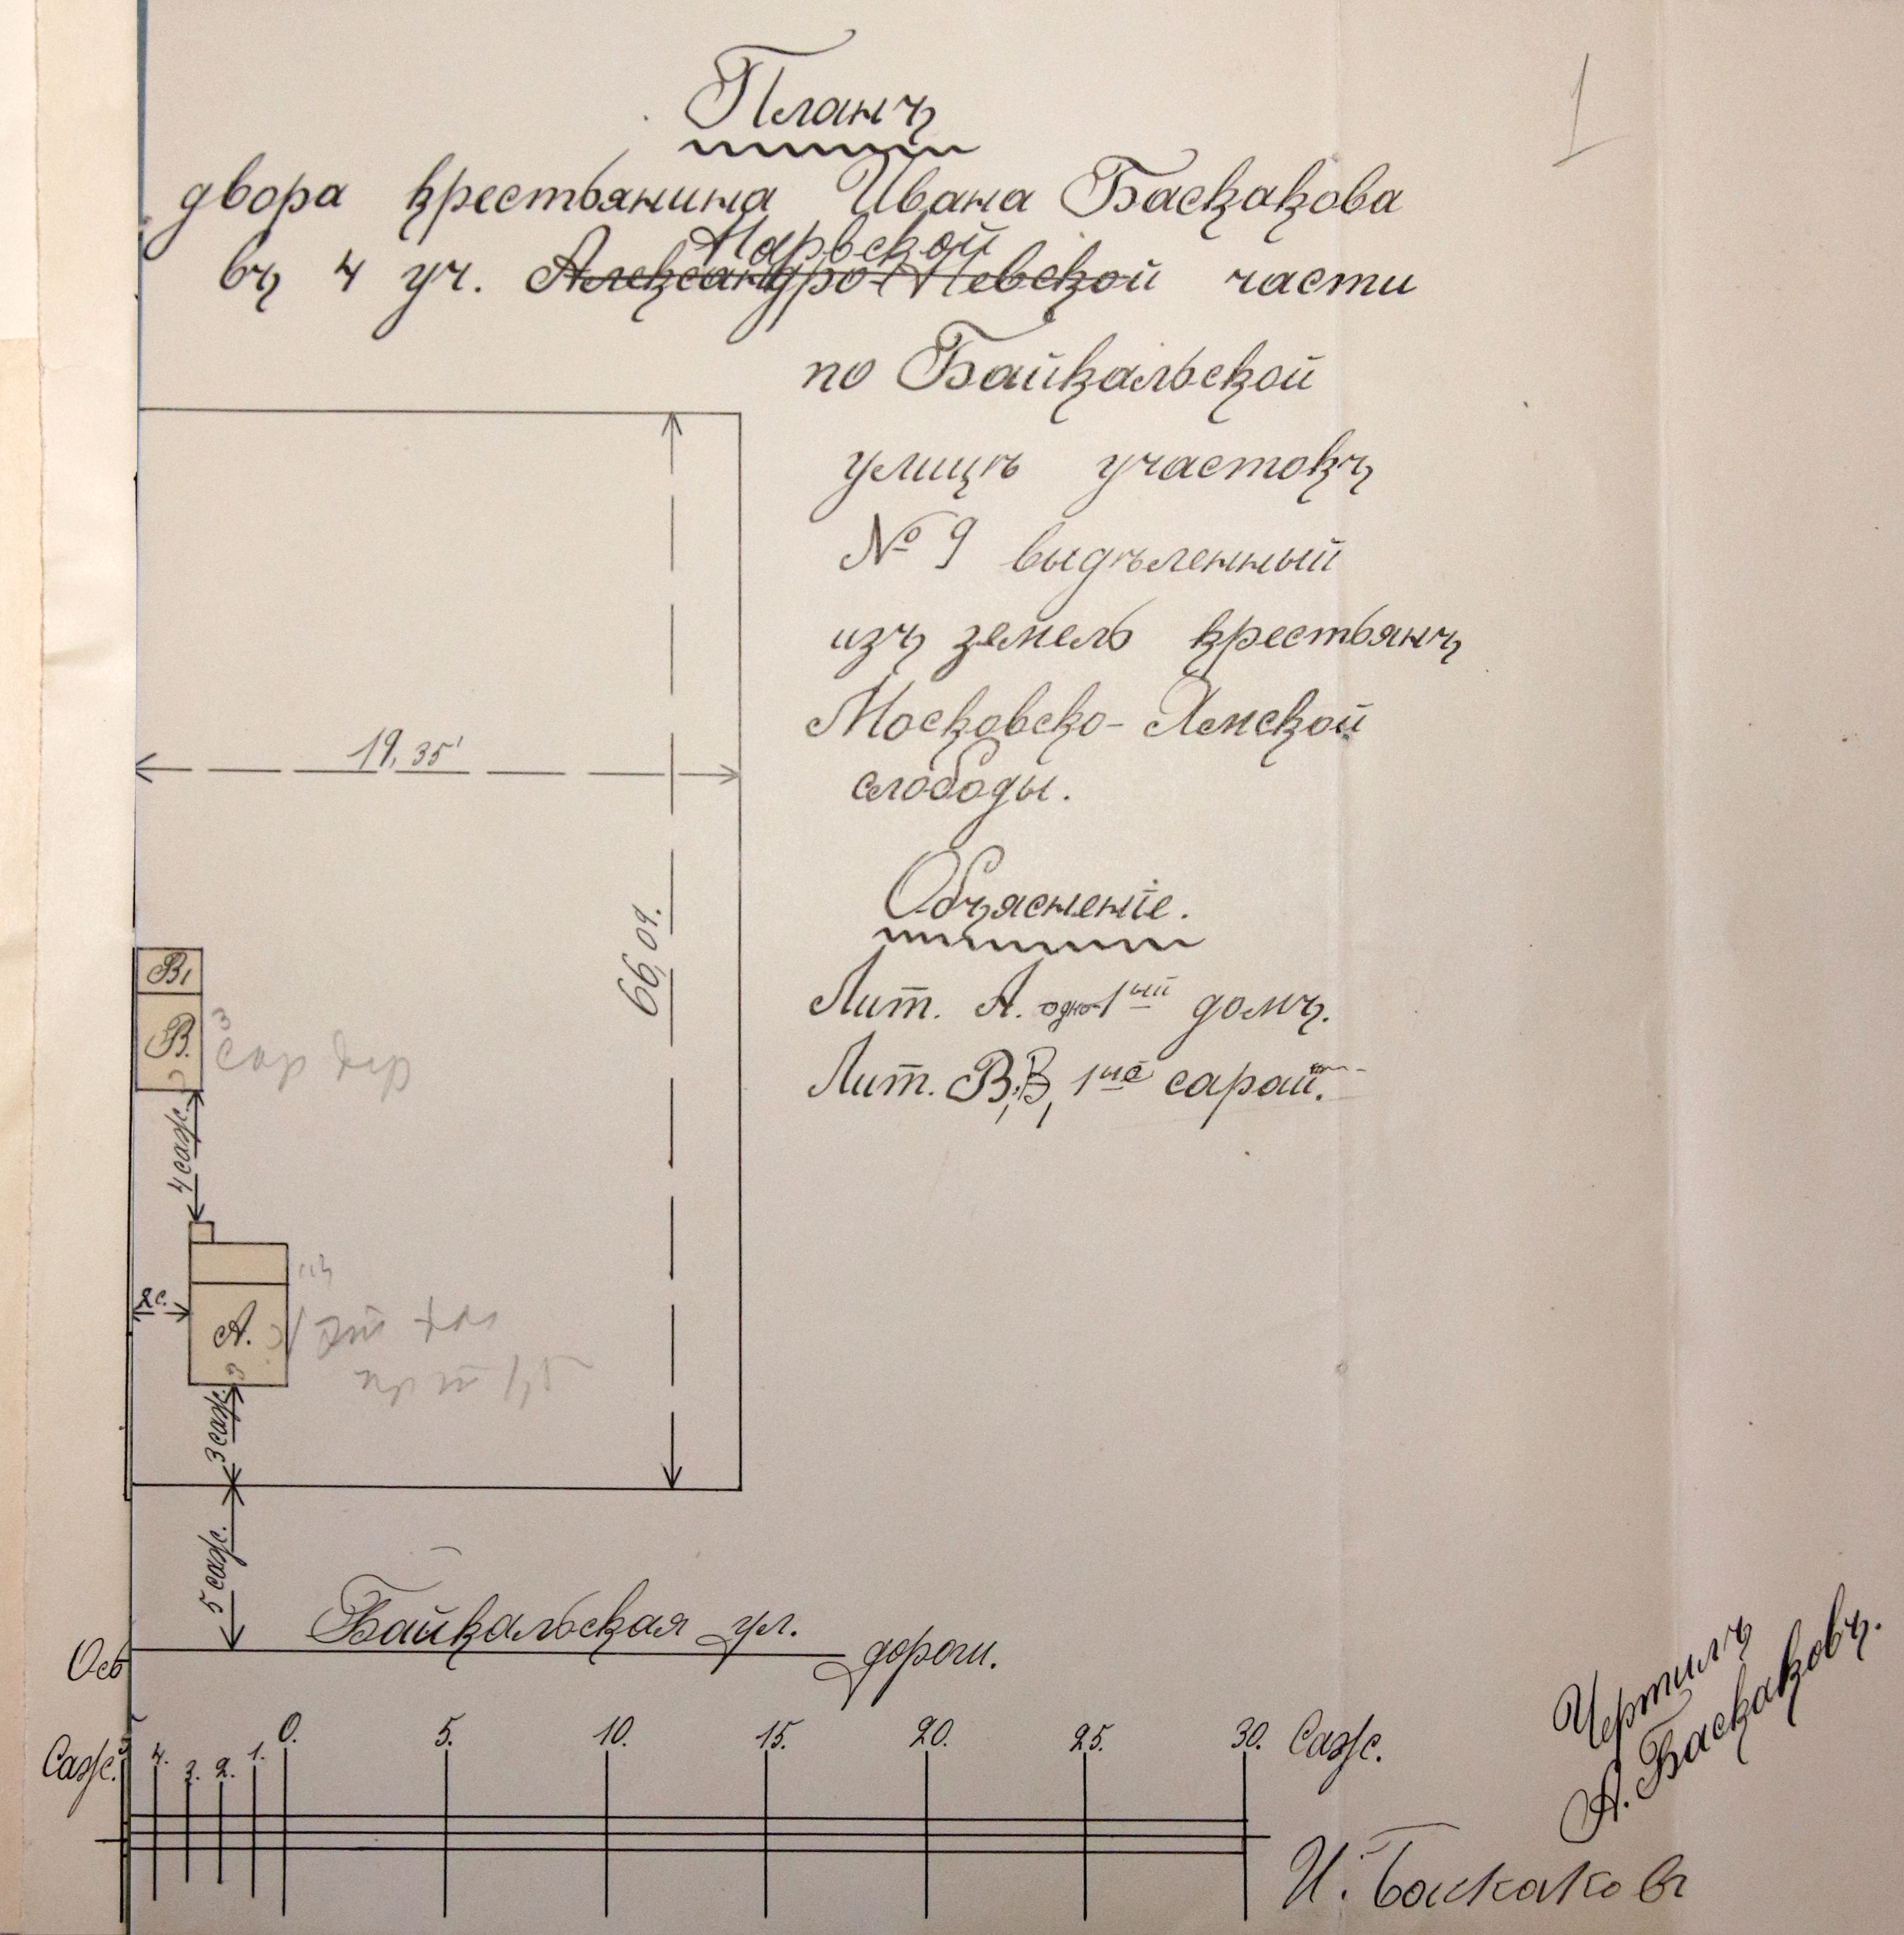 1
Планъ
двора крестьянина Ивана Баскакова
Нарвской
въ 4 уч. Александро-Невской части
по Байкальской
улицѣ участокъ
№ 9 выдѣленный
изъ земель крестьянъ
Московско-Ямской
слободы.
19,35'
66,09.
Объясненіе.
Лит. А. одно-1ый домъ.
Лит. В,В, 1ые сараи.
В1
В.
3
сар дер
4 саж.
2с.
А.
3 саж.
5 саж.
Байкальская ул.
Ось дороги.
Саж. 5 4. 3. 2. 1. 0. 5. 10. 15. 20. 25. 30. Саж.
Чертилъ
А. Баскаковъ.
И. Баскаковъ